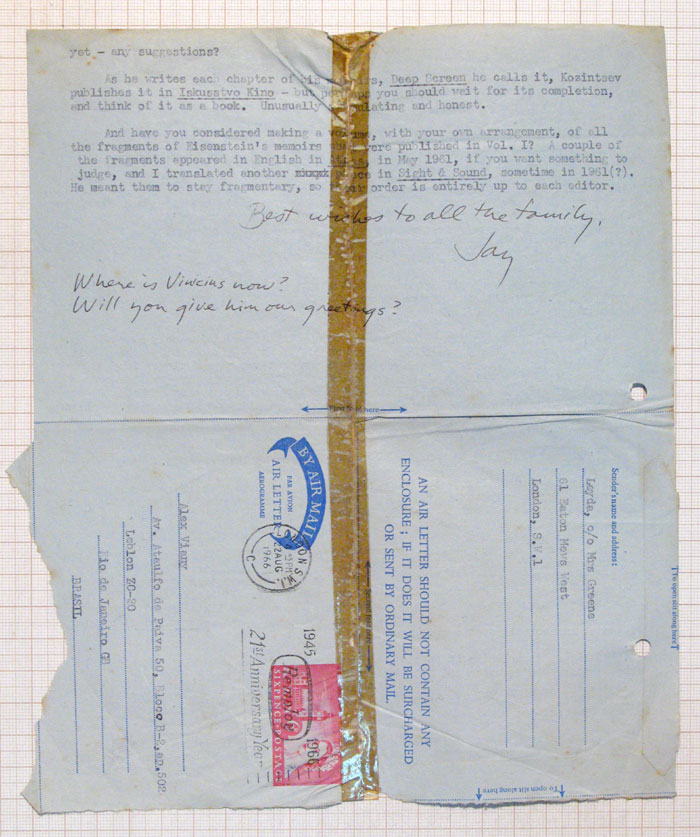 yet - any suggestions?
As he writes each chapter of his memoirs, Deep Screen he calls it, Kozintsev
publishes it in Iskusstvo Kino - but perhaps you should wait for its completion,
and think of it as a book. Unusually stimulating and honest.
And have you considered making a volume, with your own arrangement, of all
the fragments of Eisenstein's memoirs that were published in Vol. I? A couple of
the fragments appeared in English in in May 1961, if you want something to
judge, and I translated another piece in Sight & Sound, sometime in 1961(?).
He meant them to stay fragmentary, so their order is entirely up to each editor.
Best wishes to all the family,
Jay
Where is Vinicius now?
Will you give him our greetings?
First fold here
BY AIR MAIL
PAR AVION
AIR LETTER
AEROGRAMME
LONDON S.W.1.
PM
22 AUG
1966
C
1945
1966
Remploy
21st Anniversary Year
SIXPENCE POSTAGE
Alex Viany
Av. Ataulfo de Paiva 50, Bloco B-2, ap. 502
Leblon ZC-20
Rio de Janeiro GB
BRASIL
AN AIR LETTER SHOULD NOT CONTAIN ANY
ENCLOSURE ; IF IT DOES IT WILL BE SURCHARGED
OR SENT BY ORDINARY MAIL.
Second fold here
Sender's name and address :
Leyda, c/o Mrs Greene
61 Eaton Mews West
London, S.W.1
To open slit along here
To open slit along here